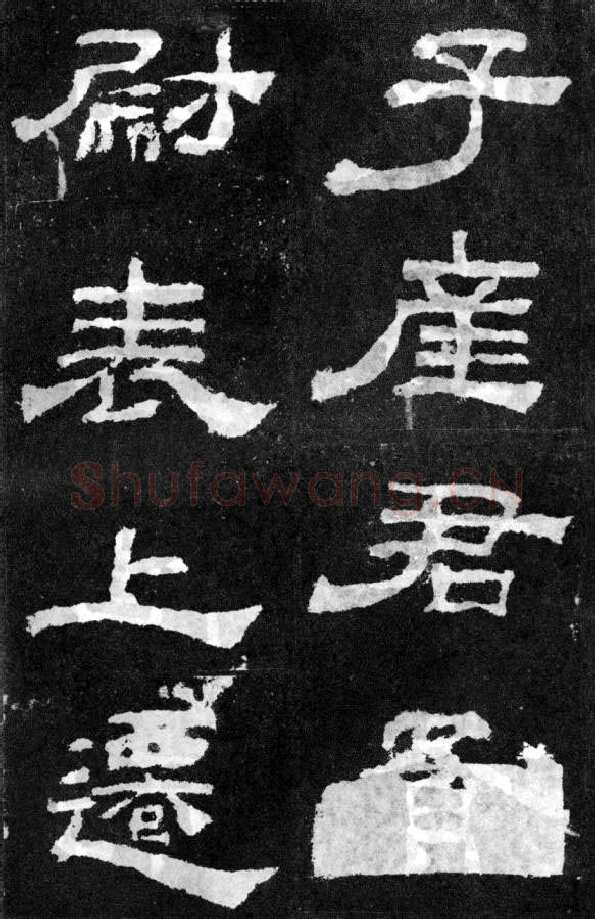 子產君
尉表上遷
Shufawang.CN